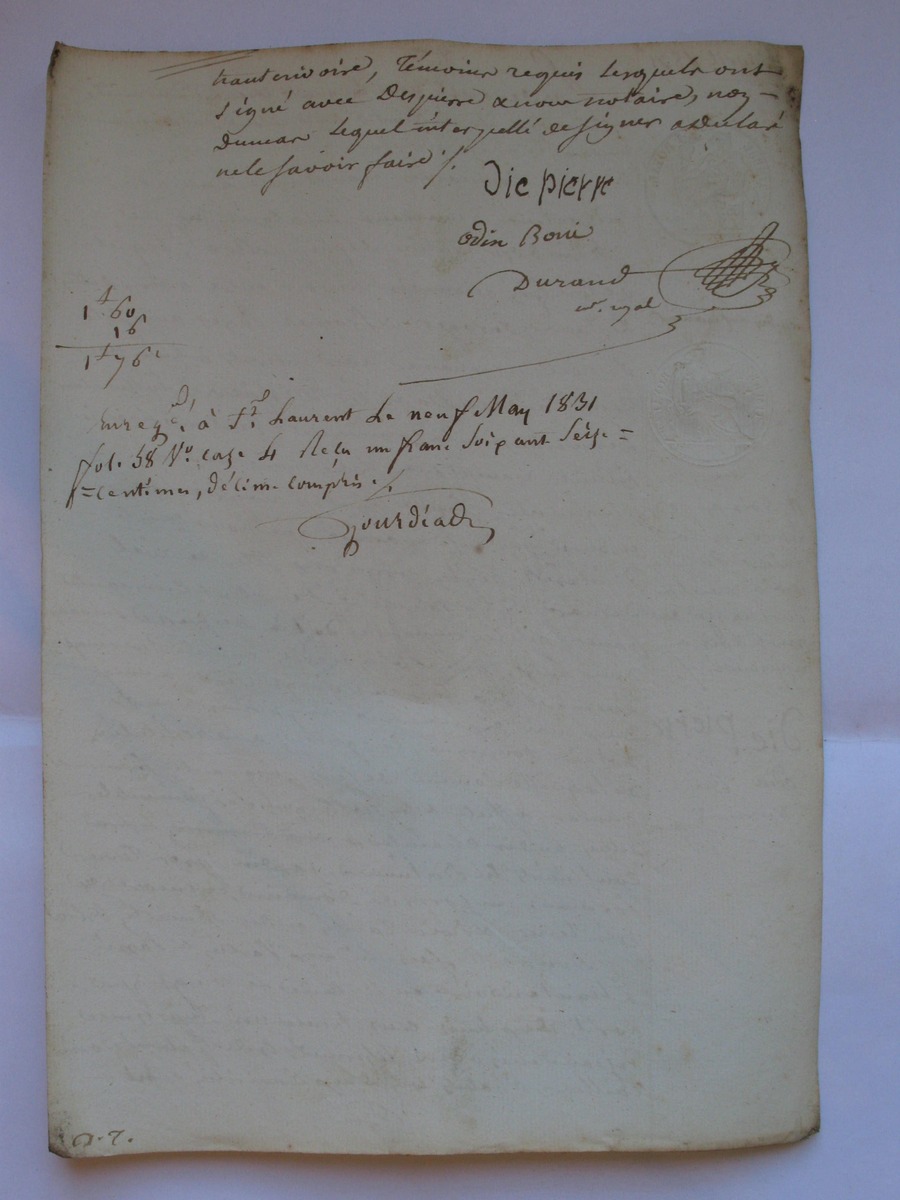 témoins requis lesquels ont
signé avec Despierre & nous notaire, non
Dumas lequel interpellé de signer a déclaré
ne le savoir faire ./.
Die pierre
odin Boni
Durand
nre. royal
1f 60
16
1f 76c
enregé. à St. Laurent le neuf May 1831
fol. 38 Vo. case 4 Reçu un franc soixant seize =
= centimes, décime compris ./.